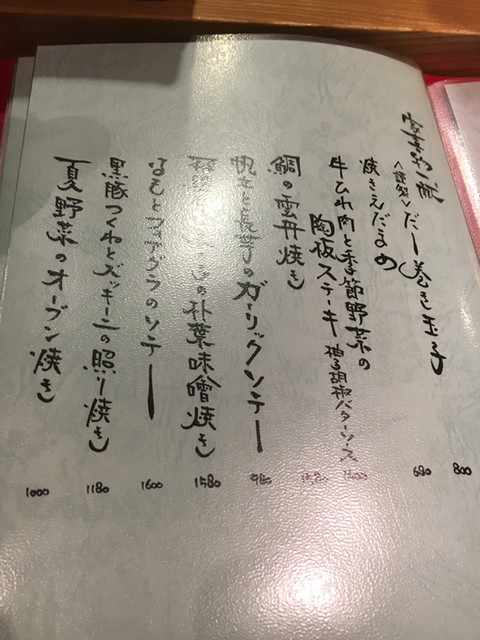 だし巻き玉子
800
焼きえだまめ
680
牛ひれ肉と季節野菜の
陶板ステーキ 柚子胡椒バターソース
鯛の雲丹焼き
帆立と長芋のガーリックソテー
980
の朴葉味噌焼き
1580
なすとフォアグラのソテー
1600
黒豚つくねとズッキーニの照り焼き
1180
夏野菜のオーブン焼き
1000